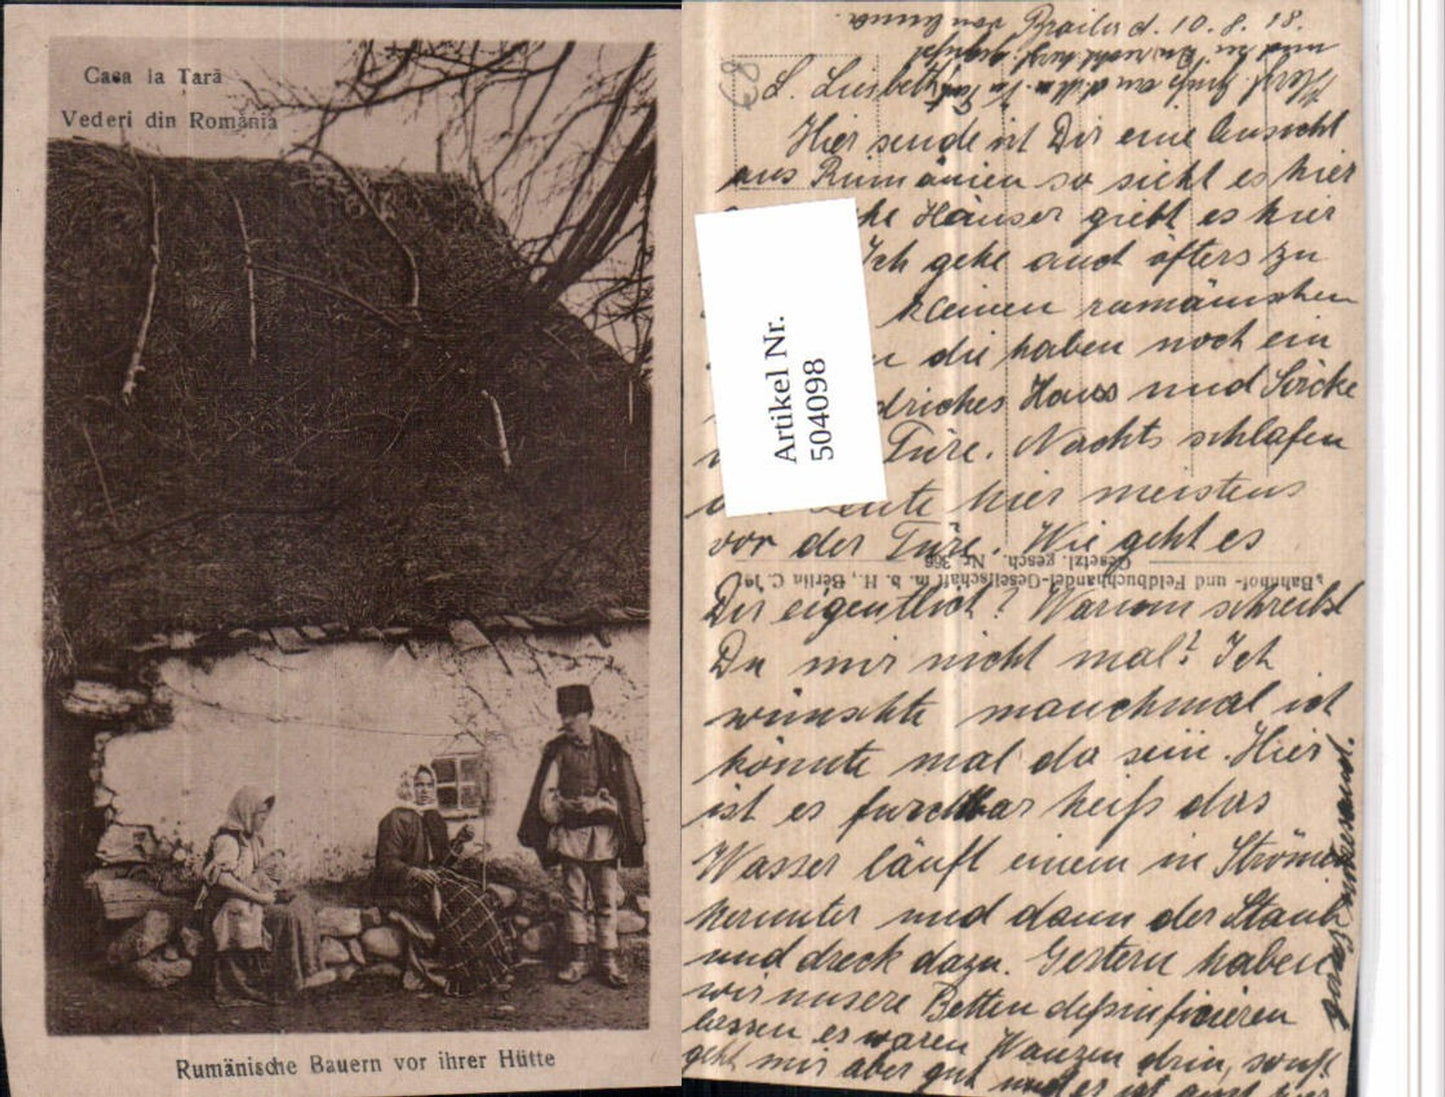 Casa la Tară
Vederi din România
Rumänische Bauern vor ihrer Hütte
Artikel Nr.
504098
68
Brailer d. 10. 8. 18.
L. Liesbeth
Hier sende ich Dir eine Ansicht
aus Rumänien so sieht es hier
he Häuser giebt es hier
Ich gehe auch öfters zu
kleinen rumänischen
die haben noch ein
driches Haus und
Türe. Nachts schlafen
Leute hier meistens
vor der Türe. Wie geht es
Gesetzl. gesch. Nr. 366
Bahnhof- und Feldbuchhandel-Gesellschaft m. b. H., Berlin C.
Dir eigentlich? Warum schreibst
Du mir nicht mal? Ich
wünschte manchmal ich
könnte mal da sein. Hier
ist es furchtbar heiß das
Wasser läuft einem in Strömen
herunter und dann der Staub
und dreck dazu. Gestern haben
wir unsere Betten deßinficieren
lassen es waren Wanzen drin, sonst
geht mir aber gut und es ist hier
ganz